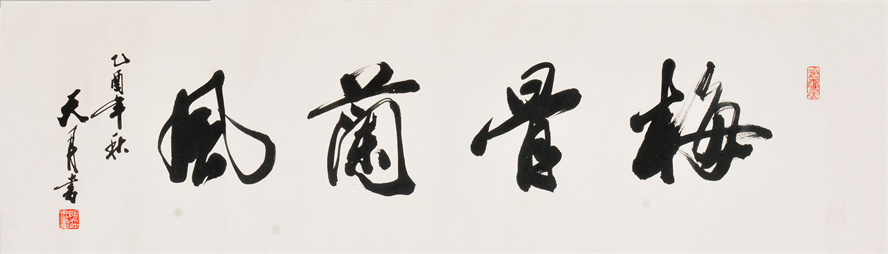 梅骨蘭風
乙酉年秋
天月書